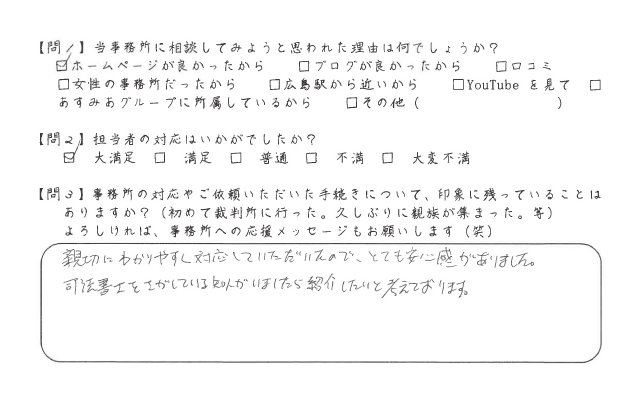 【問1】当事務所に相談してみようと思われた理由は何でしょうか？
☑ホームページが良かったから　□ブログが良かったから　□口コミ
□女性の事務所だったから　□広島駅から近いから　□YouTube を見て　□
あすみあグループに所属しているから　□その他（　　　　　　　　）
【問2】担当者の対応はいかがでしたか？
☑　大満足　□　満足　□　普通　□　不満　□　大変不満
【問3】事務所の対応やご依頼いただいた手続きについて、印象に残っていることは
ありますか？（初めて裁判所に行った。久しぶりに親族が集まった。等）
よろしければ、事務所への応援メッセージもお願いします（笑）
親切にわかりやすく対応していただいたので、とても安心感がありました。
司法書士をさがしている知人がいましたら紹介したいと考えております。